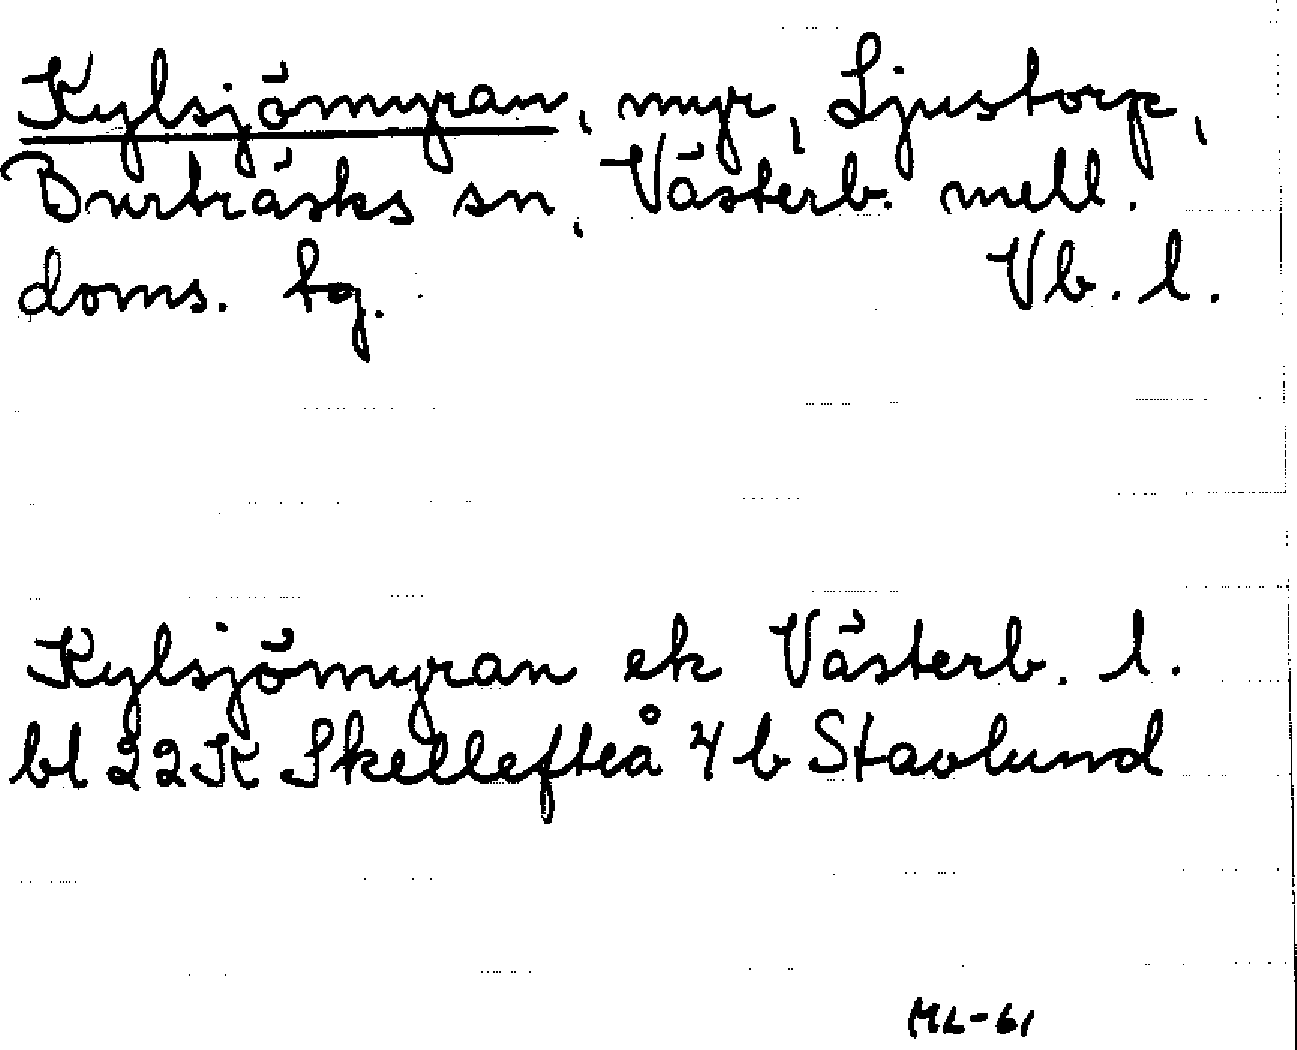 Kylsjömyran, myr, Ljustorp,
Burträsks sn, Västerb. mell.
doms. tg. Vb. l.
Kylsjömyran ek Västerb. l.
bl 22K Skellefteå 4 b Stavlund
ML-61